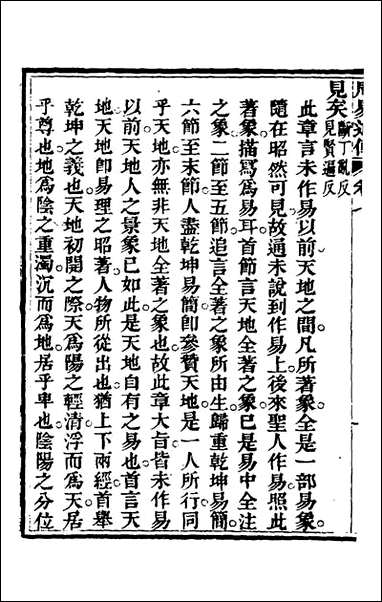 周易
見矣斷丁亂反見賢遍反
此章言未作易以前天地之間。凡所著象。全是一部易象。
隨在昭然可見。故通未說到作易上。後來聖人作易。照此
著象。描寫爲易耳。首節言天地全著之象。已是易中全注
之象。二節至五節。追言全著之象所由生。歸重乾坤易簡。
六節至末節。人盡乾坤易簡。卽參贊天地。是一人所行。同
乎天地。亦無非天地全著之象也。故此章大旨。皆未作易
以前。天地人之景象已如此。是天地自有之易也。首言天
地。天地卽易理之昭著。人物所從出也。猶上下兩經。首舉
乾坤之義也。天地初開之際。天爲陽之輕清。浮而爲天。居
乎尊也。地爲陰之重濁。沉而爲地。居乎卑也。陰陽之分位